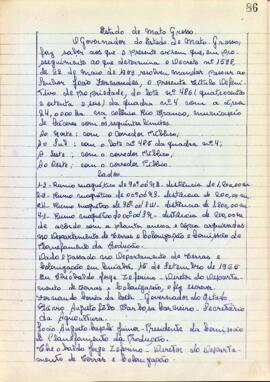 86
Estado de Mato Grosso
O Governador do Estado de Mato Grosso,
faz saber aos que o presente virem que, em pros-
seguimento ao que determina o Decreto nº 1598,
de 22 de maio de 1953, resolveu mandar passar ao
Senhor João Fernandes, o presente título Defini-
tivo de propriedade, do lote nº 486 (quatrocentos
e oitenta e seis) da quadra nº 4 com a área
24,0000 ha na Colônia Rio Branco, município
de Cáceres com os seguintes limites:
Ao Norte: com o Corredor Público,
Ao Sul: com o lote nº 485 da quadra nº 4,
A Leste: com o corredor Público,
Ao Oeste: com o corredor Público.
Lados
1-2. Rumo magnético de distância de
2-3. Rumo magnético de distância de 200,00m
3-4. Rumo magnético de distância de 1.200,00m
4-1. Rumo magnético de distância de 200,00m
de acôrdo com a planta anexa e cópia arquivadas
no Departamento de Terras e Colonização e Comissão de
Planejamento da Produção.
Dado e Passado no Departamento de Terras e
Colonização em Cuiabá, 15 de Setembro de
Eu Diretor do Departa-
mento de Terras e Colonização, o fiz escrever
Fernando Corrêa da Costa - Governador do Estado
Mário Augusto Secretário
da Agricultura.
João Augusto Júnior - Presidente da Comissão
de Planejamento da Produção.
Diretor do Departa-
mento de Terras e Colonização.